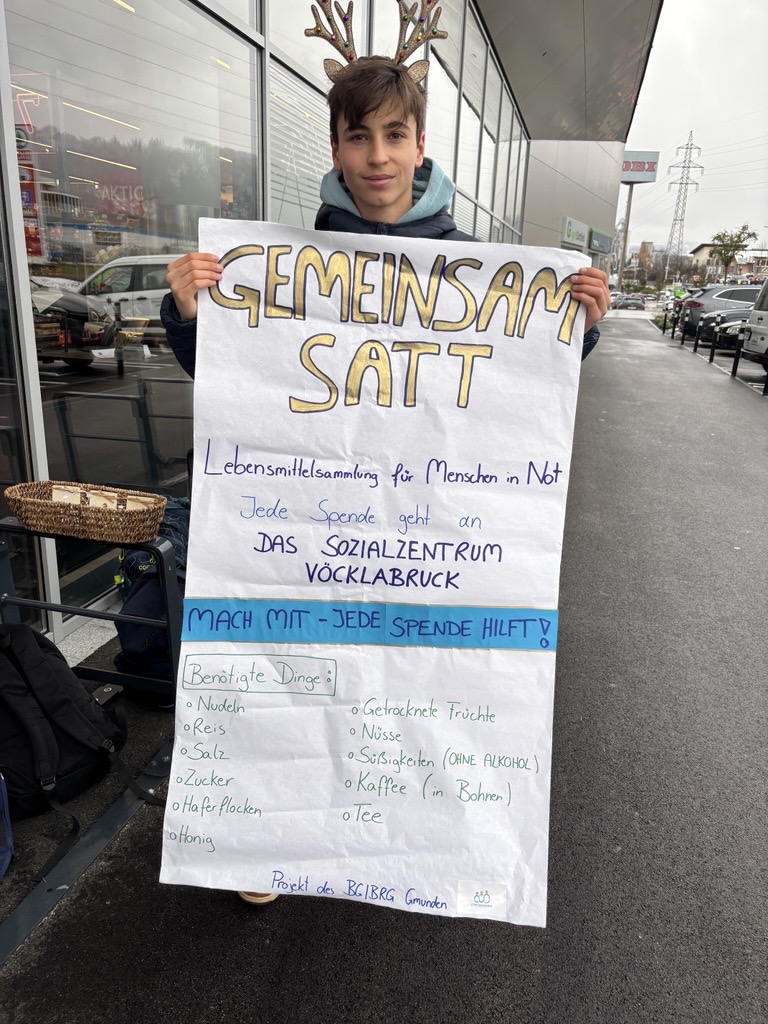 GEMEINSAM
SATT
Lebensmittelsammlung für Menschen in Not
Jede Spende geht an
DAS SOZIALZENTRUM
VÖCKLABRUCK
MACH MIT - JEDE SPENDE HILFT!
Benötigte Dinge:
o Nudeln
o Reis
o Salz
o Zucker
o Haferflocken
o Honig
o Getrocknete Früchte
o Nüsse
o Süßigkeiten (OHNE ALKOHOL)
o Kaffee (in Bohnen)
o Tee
Projekt des BG/BRG Gmunden
AKTIO